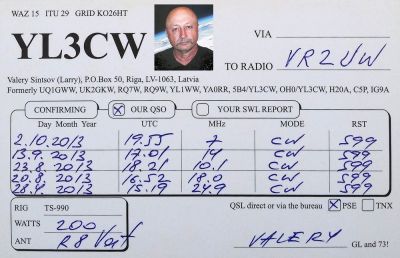 WAZ 15 ITU 29 GRID KO26HT
YL3CW
VIA
TO RADIO VR2UW
Valery Sintsov (Larry), P.O.Box 50, Riga, LV-1063, Latvia
Formerly UQ1GWW, UK2GKW, RQ7W, RQ9W, YL1WW, YA0RR, 5B4/YL3CW, OH0/YL3CW, H20A, C5P, IG9A
CONFIRMING X OUR QSO YOUR SWL REPORT
Day Month Year UTC MHz MODE RST
2.10.2013 19.55 7 CW 599
13.9.2013 17.01 14 CW 599
23.8.2013 18.21 10.1 CW 599
20.8.2013 16.52 18.0 CW 599
28.4.2013 15.19 24.9 CW 599
RIG TS-990
QSL direct or via the bureau X PSE TNX
WATTS 200
ANT R8 Vert
VALERY GL and 73!